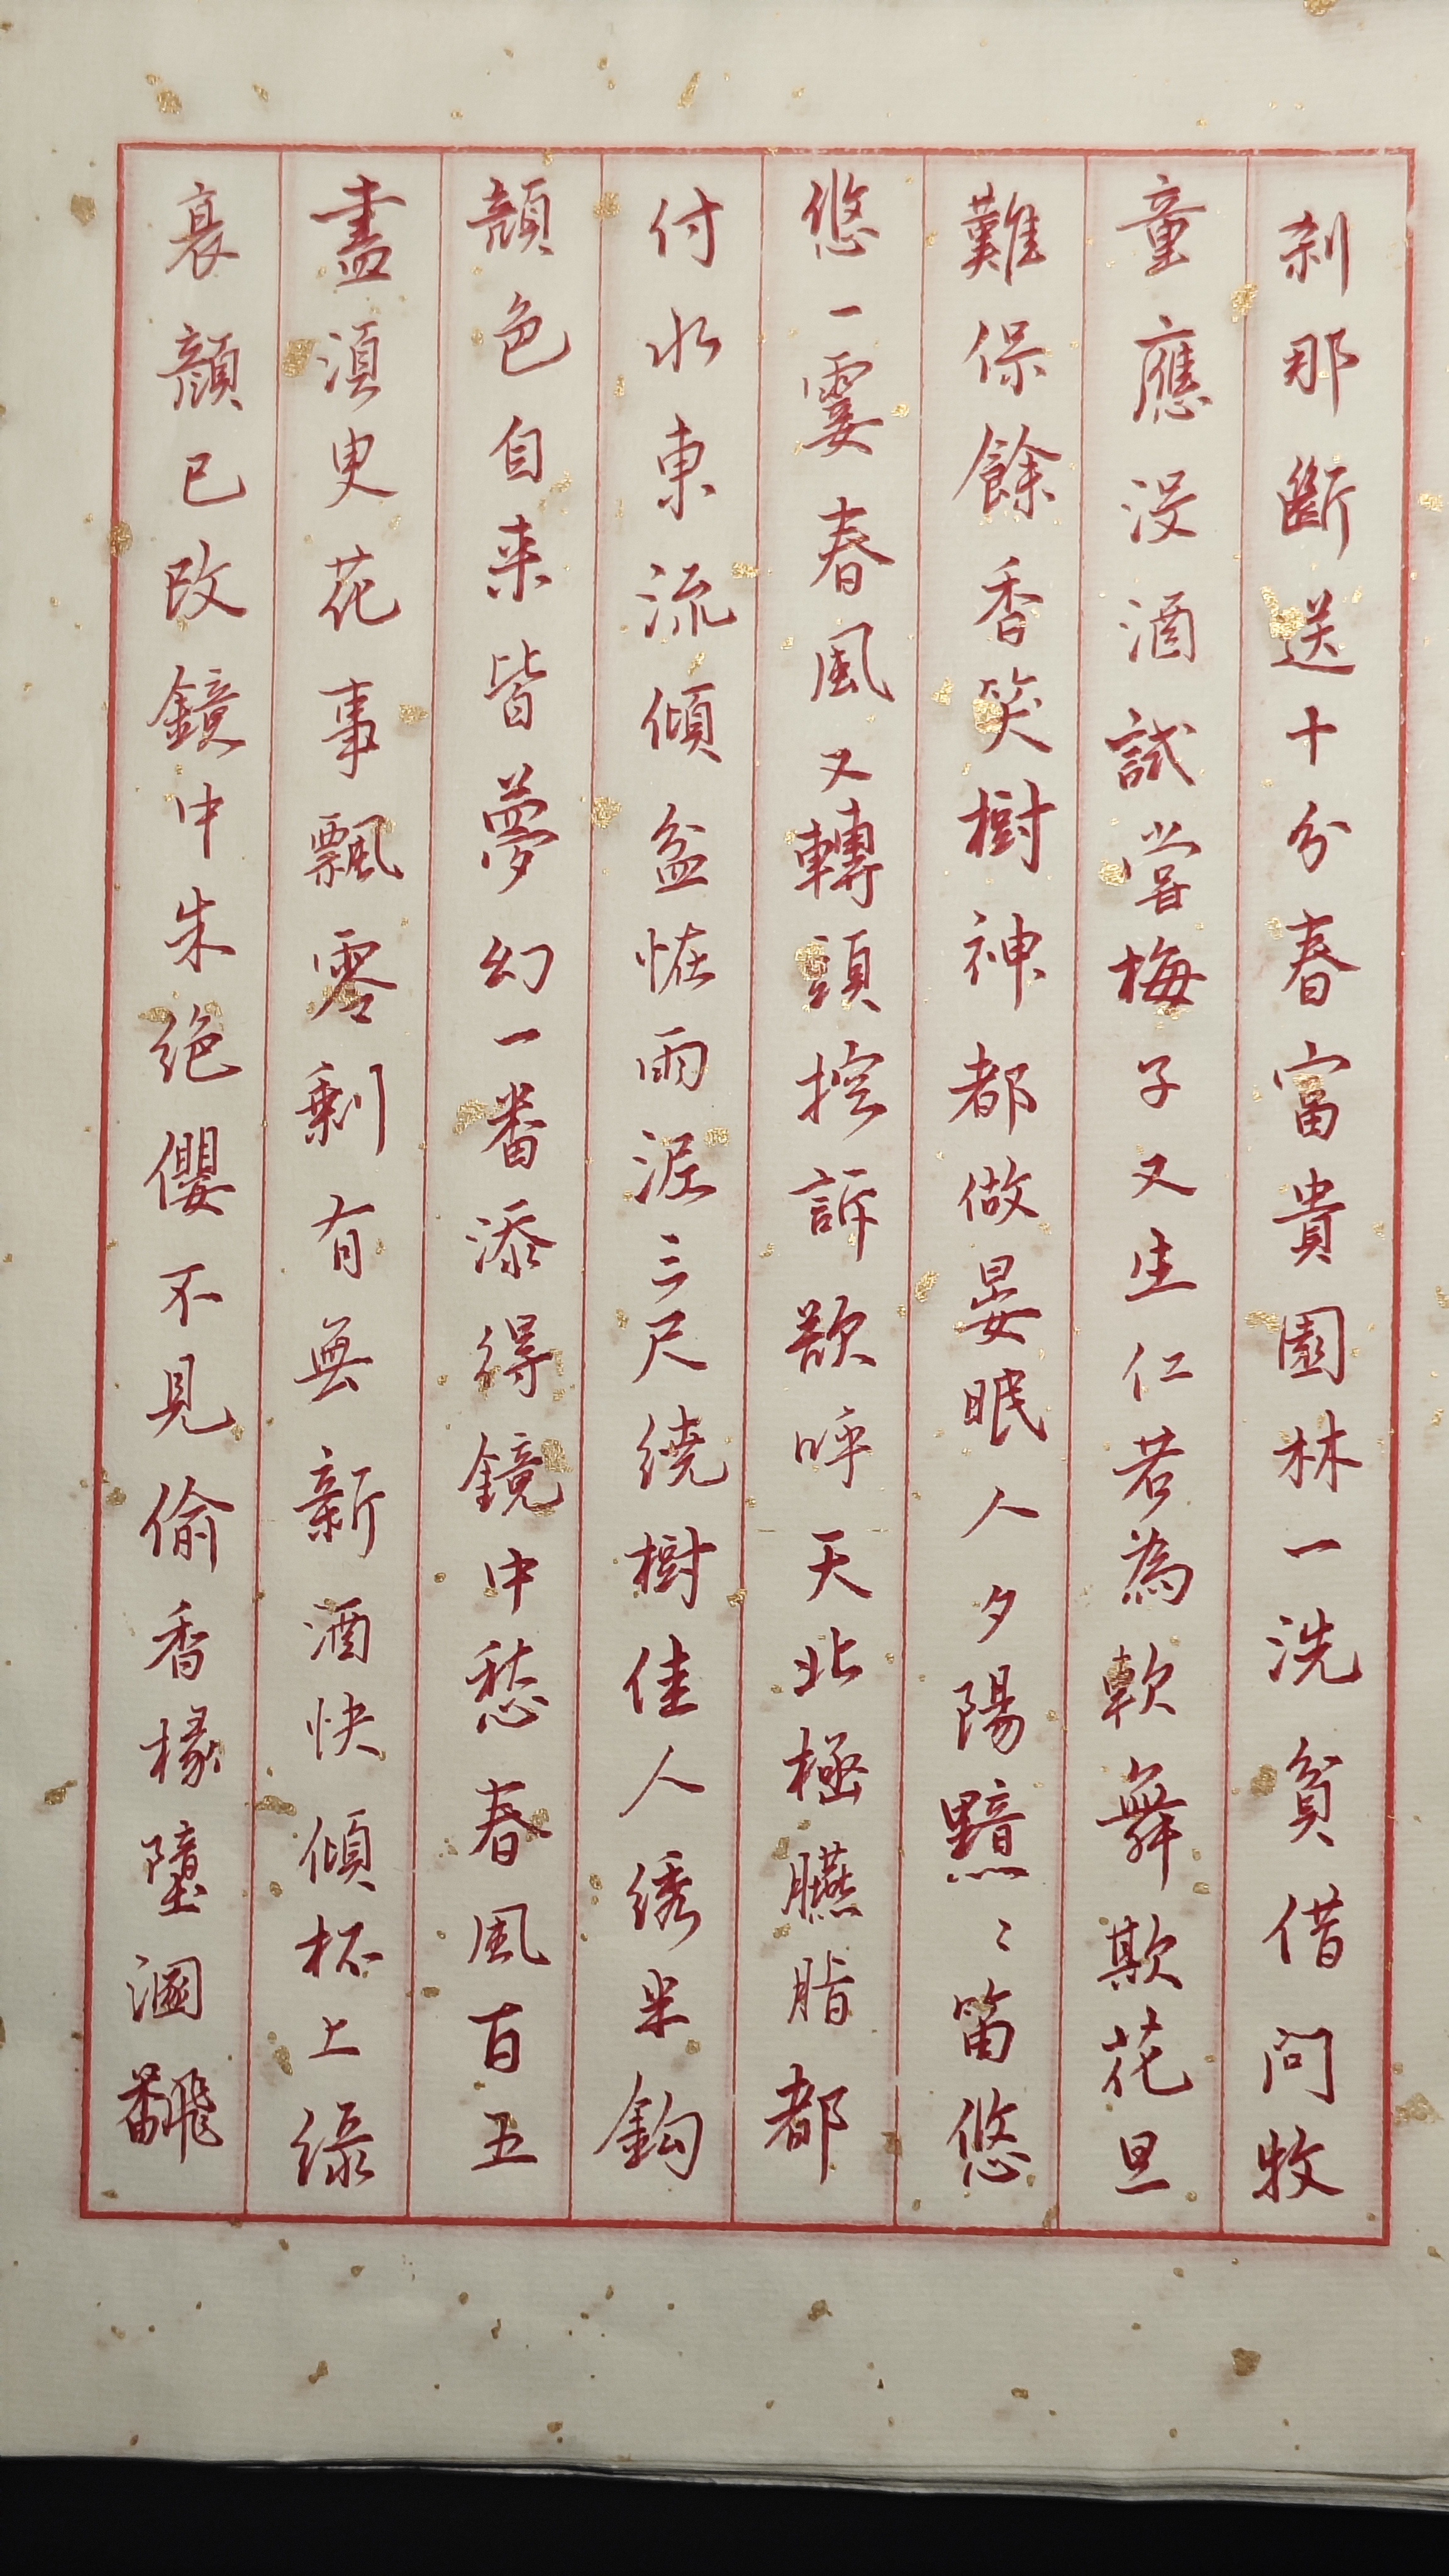 刹那斷送十分春富貴園林一洗貧借問牧
童應没酒試嘗梅子又生仁若為軟舞欺花旦
難保餘香笑樹神都做晏眠人夕陽黯〻笛悠
悠一霎春風又轉頭控訴欲呼天北極臙脂都
付水東流傾盆恠雨泥三尺繞樹佳人綉半鈎
顔色自来皆夢幻一番添得鏡中愁春風百五
盡湏叟花事飄零剩有無新酒快傾杯上綠
衰顔已改鏡中朱絶纓不見偷香掾墮溷飜